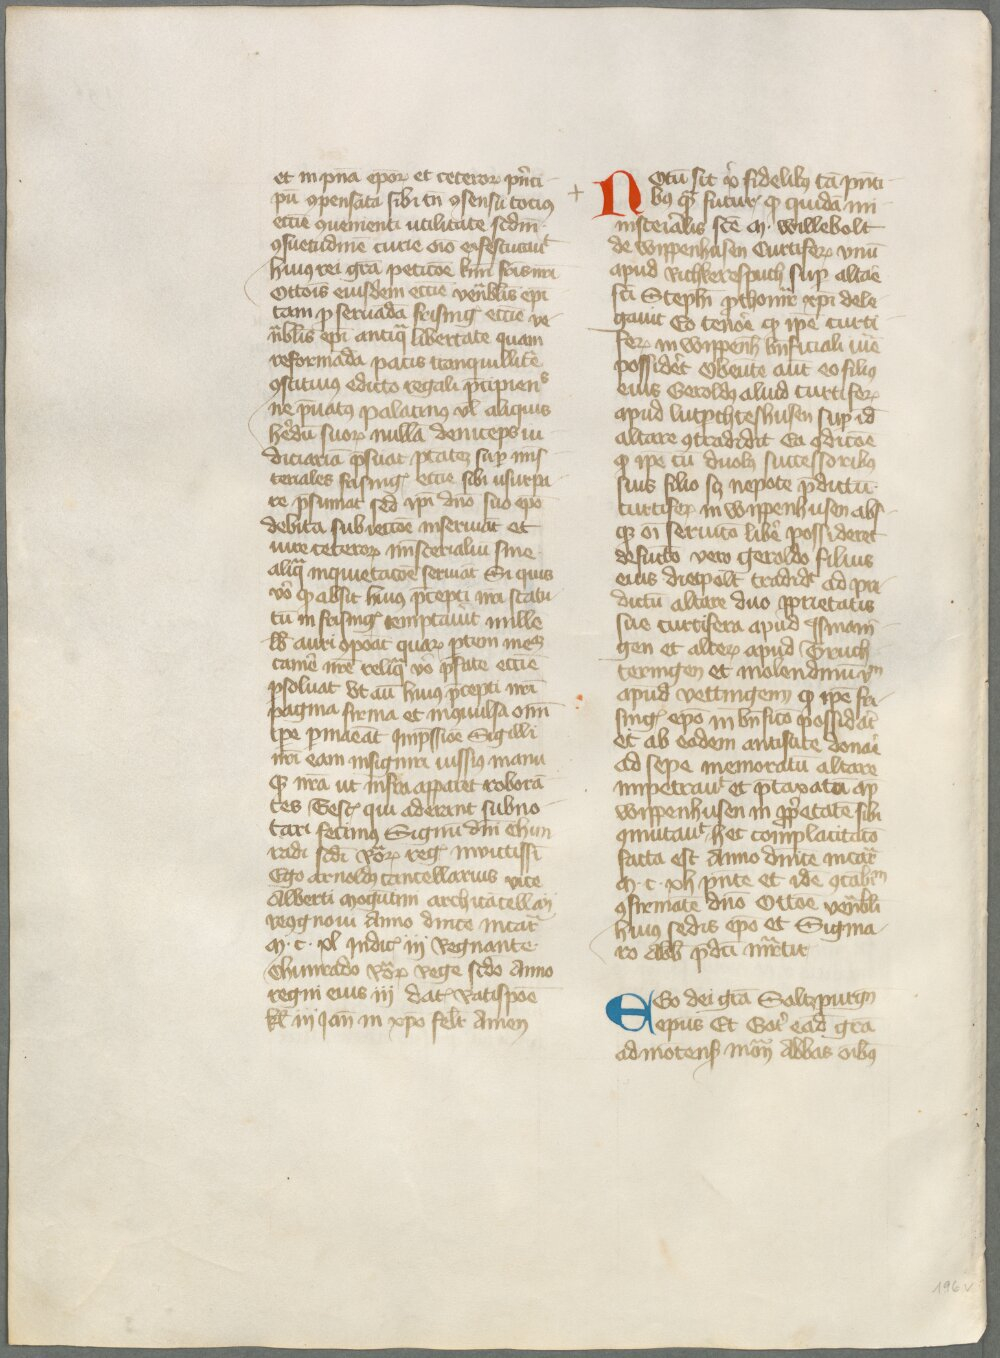 et in pn̄a epor̄ et ceteror̄ pn̄ci
pū ꝯpensata sibi tn̄ ꝯsensu tocius
eccīe ꝯuenienti utilitate scdm̄
ꝯsuetudinem curie
huiꝯ rei grā peticōe frīs nr̄i
Ottōis eiusdem eccīe ven̄blis epī
tam ꝓ seruāda frisinḡ eccīe ve
n̄blis epī antiq̄ libertate quam
reformāda pacis tranquillitē
ꝯstituiꝯ edicto regali p̄cipiens
ne pn̄atꝯ palatinꝯ vl̄ aliquis
her̄dū suor̄ nullā deinceps iu
diciariā p̄sūat ptātez sup̄ mīs
teriales frisinḡ eccīe sibi usurpa
re p̄sumat sed ip̄i dn̄o suo ep̄o
debita subiectōe inseruiāt et
iure ceteror̄ mīsterialiū sine
aliq̄ inquietacōe seruiāt Si quis
vō qd̄ absit huiꝯ p̄cepti nr̄i statu
tū in frisinḡ temptau̓it mille
lb̄ auri cōpōat quar̄ ptem
camē nr̄e reliq̄ vō p̄fate eccīe
ꝑsoluat Vt aū huiꝯ p̄cepti nr̄i
pagina firma et inꝯuulsa om̄i
tp̄e ꝑmāeat Imp̄ssiōe Sigilli
nr̄i eam insigniri iussiꝯ manu
qꝫ nr̄a ut infra apparet roborā
tes Test̄ qui aderant subno
tari fecimꝯ Signū dn̄i Chun
radi scd̄i Rōr̄ reḡ inuictissī
Ego arnoldꝯ cancellarius vice
Alberti mogūtin̄ archicācellarij
recognoui Anno dnīce incar̄
M · C · xl Indic̄ iij Regnante
Chunrado Rōr̄ Rege scd̄o Anno
regni eius iij dat̄ Ratispōe
kl̄ iij Jan̄ in xp̄o felr̄ Amen
Notū sit xp̄i fidelibꝯ tā pn̄ti
bꝯ qꝫ futur̄ qꝫ quidā mi
nisterialis scē M · Willebolt
de Wippenhusen Curtifer̄ vnū
apud Richkerespuch sup̄ altāe
sc̄i Steph̄i
gauit Eo tenōre qꝫ ip̄e curti
fer̄ in Wippenh̄ bn̄ficiali iūe
possider̄t Obeūte aūt eo filiꝯ
eius Geroldꝯ aliud curtifer̄
apud lutp̄chteshusen sup̄ id
altare ꝯtradidit Ea ꝯdicōe
qꝫ ip̄e cū duobꝯ successoribꝯ
suis filio sꝫ nepote p̄dictū
curtifer̄ in Wippenhusen abs
qꝫ oī seruitio libē possideret
defucto vero Geroldo filius
eius dietpolt tradid̄ ad pre
dictū altare duo ꝓprietatis
sue curtifera apud
gen et alter̄ apud Truch
teringen et molendinū vn̄
apud Vettingen qꝫ ip̄e fri
sinḡ ep̄o in bn̄ficō possidāt
et ab eodem antistite donāi
ad sepe memoratū altare
impetraut et p̄taxatā ap̄
Wippenhusen in ꝓp̄etatē sibi
ꝯmutaut Hec complacitatō
facta est Anno dnīce incar̄
M · C · xlj pn̄te et ide
ꝯfirmāte dn̄o Ottōe ven̄bli
huiꝯ sedis ep̄o et Sigma
ro abb̄ p̄dc̄i
Ego dei grā Saltzpurgn̄
epus Et Got̄ eād grā
admotens̄ mōn Abbas oībꝯ
196v